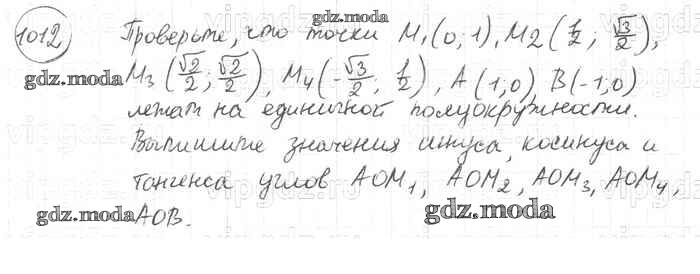 1012 Проверьте, что точки M₁(0; 1), M₂(1/2; √3/2),
M₃(√2/2; √2/2), M₄(-√3/2; 1/2), A(1; 0), B(-1; 0)
лежат на единичной полуокружности.
Выпишите значения синуса, косинуса и
тангенса углов AOM₁, AOM₂, AOM₃, AOM₄,
AOB.
gdz.moda
gdz.moda
gdz.moda
gdz.moda